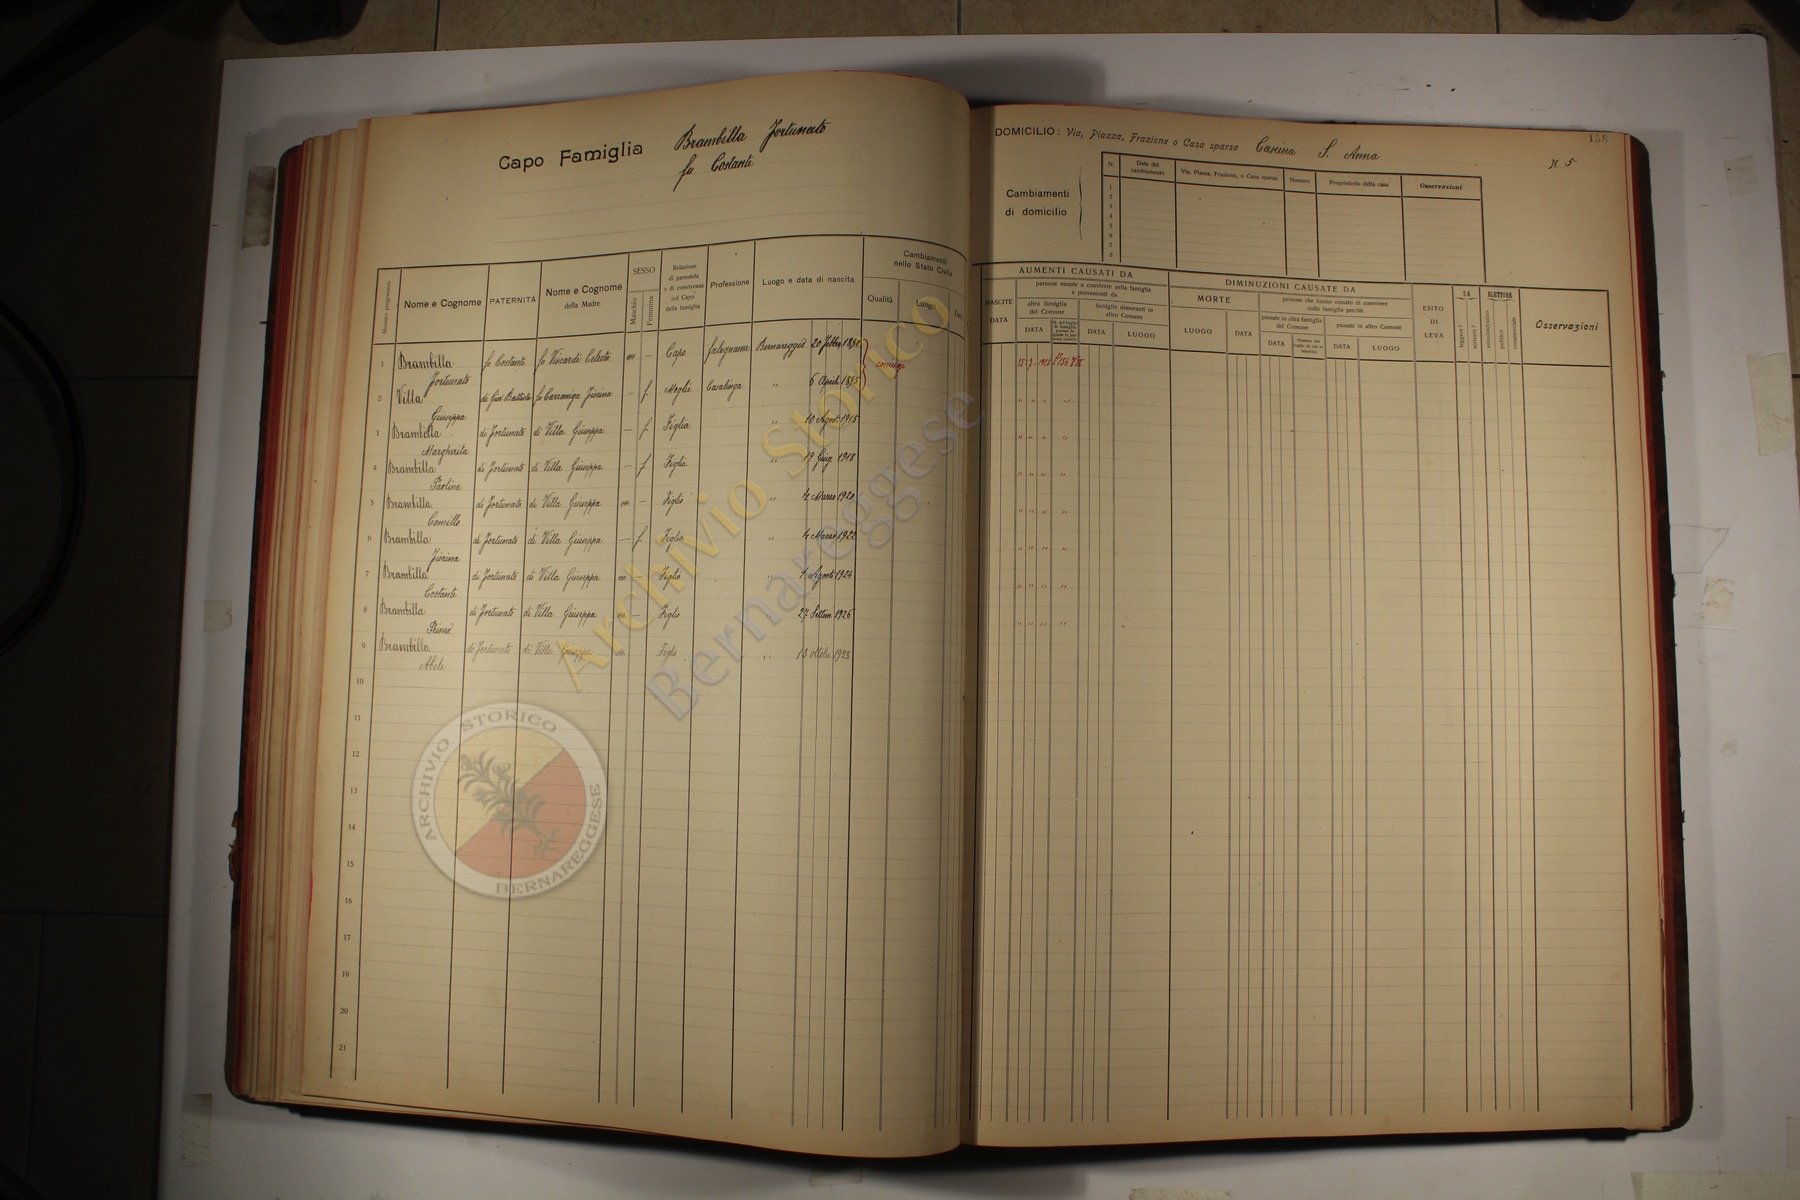 Capo Famiglia Brambilla Fortunato
fu Costante
DOMICILIO: Via, Piazza, Frazione o Casa sparsa Cascina S. Anna N. 5
158
Cambiamenti
di domicilio
N. Data del cambiamento Via, Piazza, Frazione, o Casa sparsa Numero Proprietario della casa Osservazioni
1
2
3
4
5
6
7
8
Numero progressivo Nome e Cognome PATERNITÀ Nome e Cognome della Madre SESSO Maschio Femmina Relazione di parentela o di convivenza col Capo della famiglia Professione Luogo e data di nascita Cambiamenti nello Stato Civile Qualità Luogo Data
1 Brambilla Fortunato fu Costante fu Viscardi Celesta m - Capo falegname Bernareggio 20 Febbr. 1890 coniugi
2 Villa Giuseppa di Giov. Battista fu Carzaniga Fiorina - f Moglie Casalinga " 6 Aprile 1895
3 Brambilla Margherita di Fortunato di Villa Giuseppa - f Figlia " 10 Agost. 1915
4 Brambilla Paolina di Fortunato di Villa Giuseppa - f Figlia " 19 Giug 1918
5 Brambilla Camillo di Fortunato di Villa Giuseppa m - Figlio " 4 Marzo 1920
6 Brambilla Fiorina di Fortunato di Villa Giuseppa - f Figlia " 4 Marzo 1922
7 Brambilla Costante di Fortunato di Villa Giuseppa m - Figlio " 1 Agosto 1924
8 Brambilla Primo di Fortunato di Villa Giuseppa m - Figlio " 27 Settem 1926
9 Brambilla Abele di Fortunato di Villa Giuseppa m Figlio " 13 ottob. 1928
10
11
12
13
14
15
16
17
18
19
20
21
AUMENTI CAUSATI DA
NASCITE DATA
persone venute a convivere nella famiglia e provenienti da
altra famiglia del Comune DATA
famiglie dimoranti in altro Comune DATA LUOGO
DIMINUZIONI CAUSATE DA
MORTE LUOGO DATA
persone che hanno cessato di convivere colla famiglia perchè
passate in altra famiglia del Comune DATA
passate in altro Comune DATA LUOGO
ESITO DI LEVA
SA leggere? scrivere?
ELETTORE amministrativo politico commerciale
Osservazioni
" " " "
" " " "
" " " "
" " " "
" " " "
" " " "
" " " "
Archivio Storico
Bernareggese
ARCHIVIO STORICO BERNAREGGESE